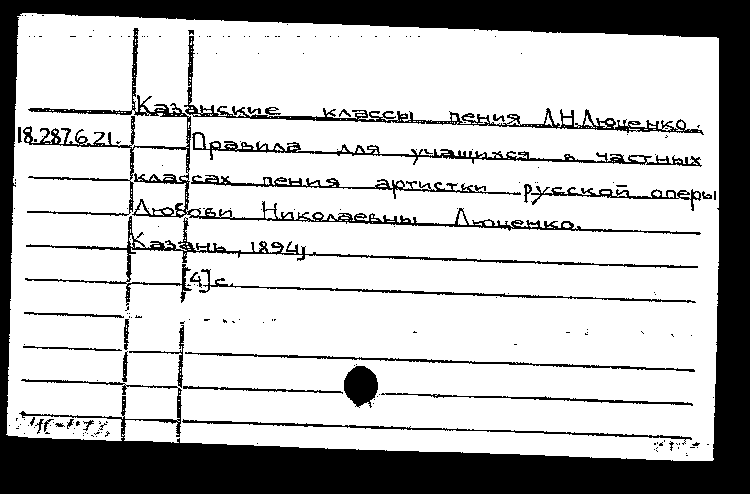 Казанские классы пения Л.Н.Люценко.
18.287.6.21. Правила для учащихся в частных
классах пения артистки русской оперы
Любови Николаевны Люценко.
Казань, 1894г.
[4]с.